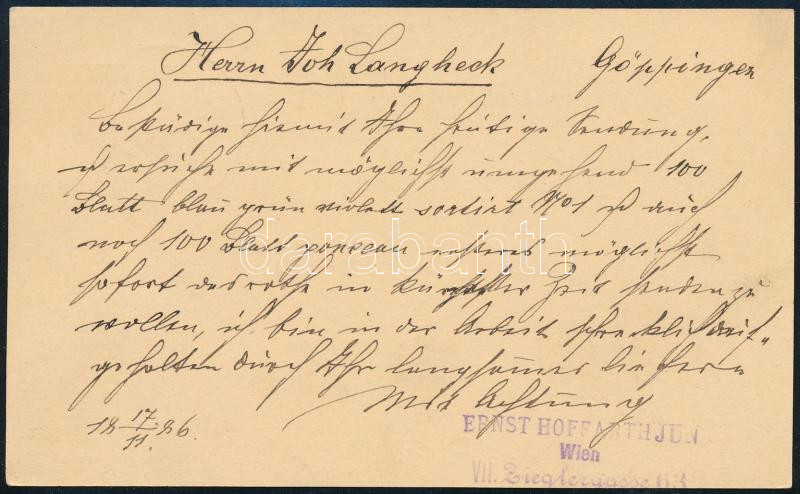 Herrn Joh Langheck Göppingen
Bestätige hiemit Ihre heutige Sendung,
u ersuche mir möglichst umgehend 100
Blatt blau grün violett sortirt No1 u auch
noch 100 Blatt ponceau ersteres möglichst
sofort das rothe in kürzester Zeit senden zu
wollen, ich bin in der Arbeit schrecklich auf-
gehalten durch Ihr langsames liefern
Mit Achtung
18 17/11. 96.
ERNST HOFFARTH JUN
Wien
VII. Zieglergasse 63
darabanth